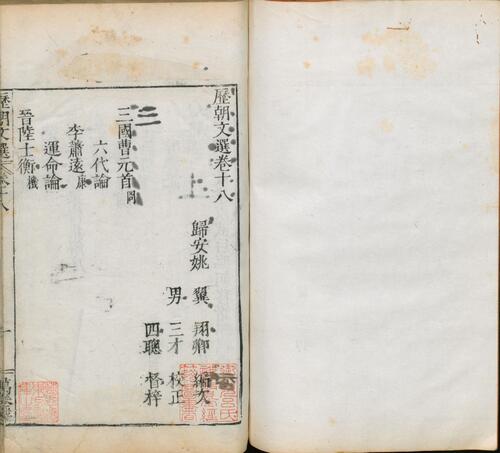 歷朝文選卷十八
歸安姚翼翔卿編次
男三才校正
四聰督梓
三
三國曹元首冏
六代論
李蕭遠康
運命論
晉陸士衡機
歷朝文選 卷十八
一